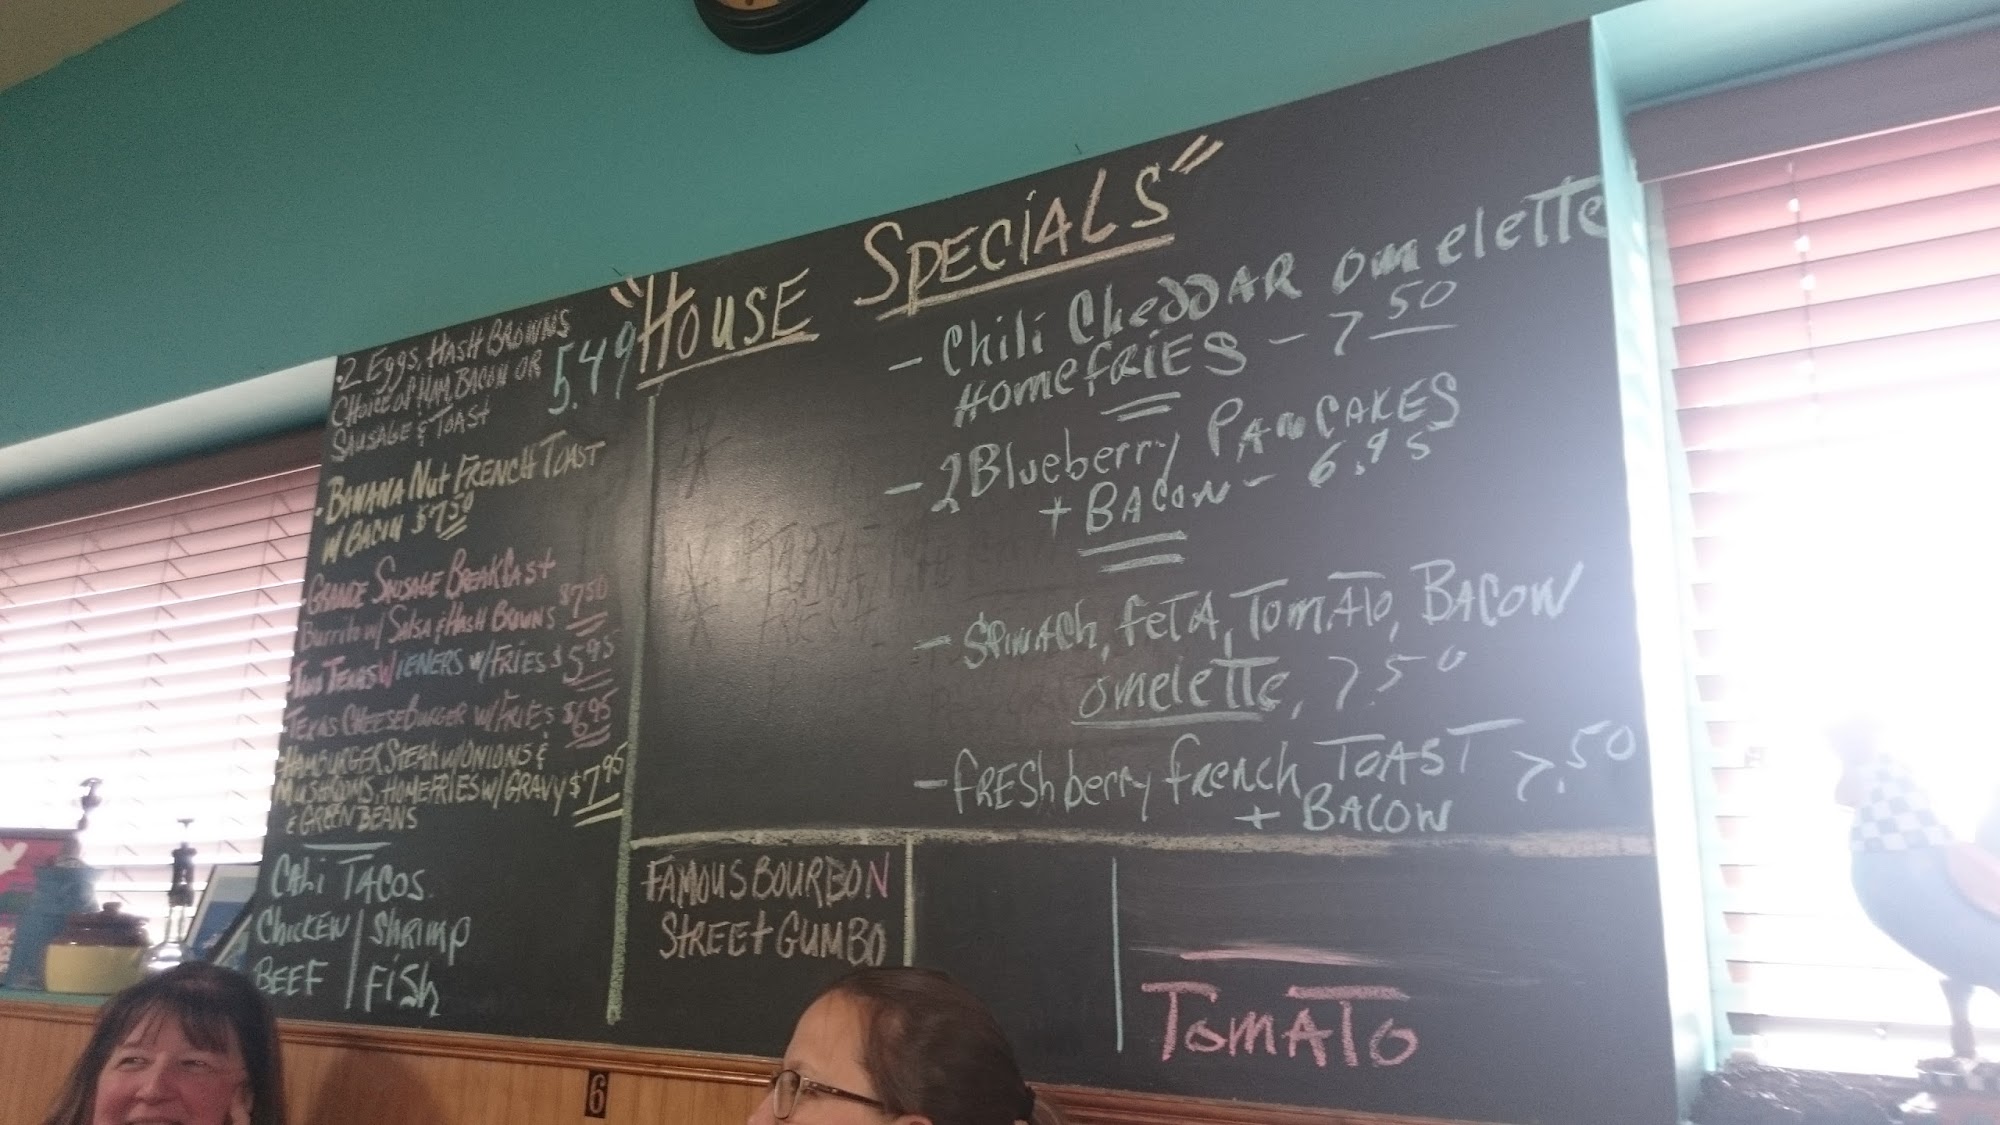 "House Specials"
·2 Eggs, Hash Browns
Choice of Ham, Bacon or
Sausage & Toast
5.49
·Banana Nut French Toast
w/ Bacon $7.50
·Grande Sausage Breakfast
Burrito w/ Salsa & Hash Bowns $7.50
·Two Texas Wieners w/ Fries $5.95
·Texas Cheeseburger w/ Fries $6.95
·Hamburger Steak w/ Onions &
Mushrooms, Homefries w/ Gravy $7.95
& Green Beans
Cali Tacos
Chicken | Shrimp
Beef | Fish
- Chili Cheddar omelette
Homefries - 7.50
- 2 Blueberry Pancakes
+ Bacon - 6.95
- Spinach, feta, Tomato, Bacon
omelette, 7.50
- fresh berry french Toast 7.50
+ Bacon
Famous Bourbon
Street Gumbo
Tomato
6